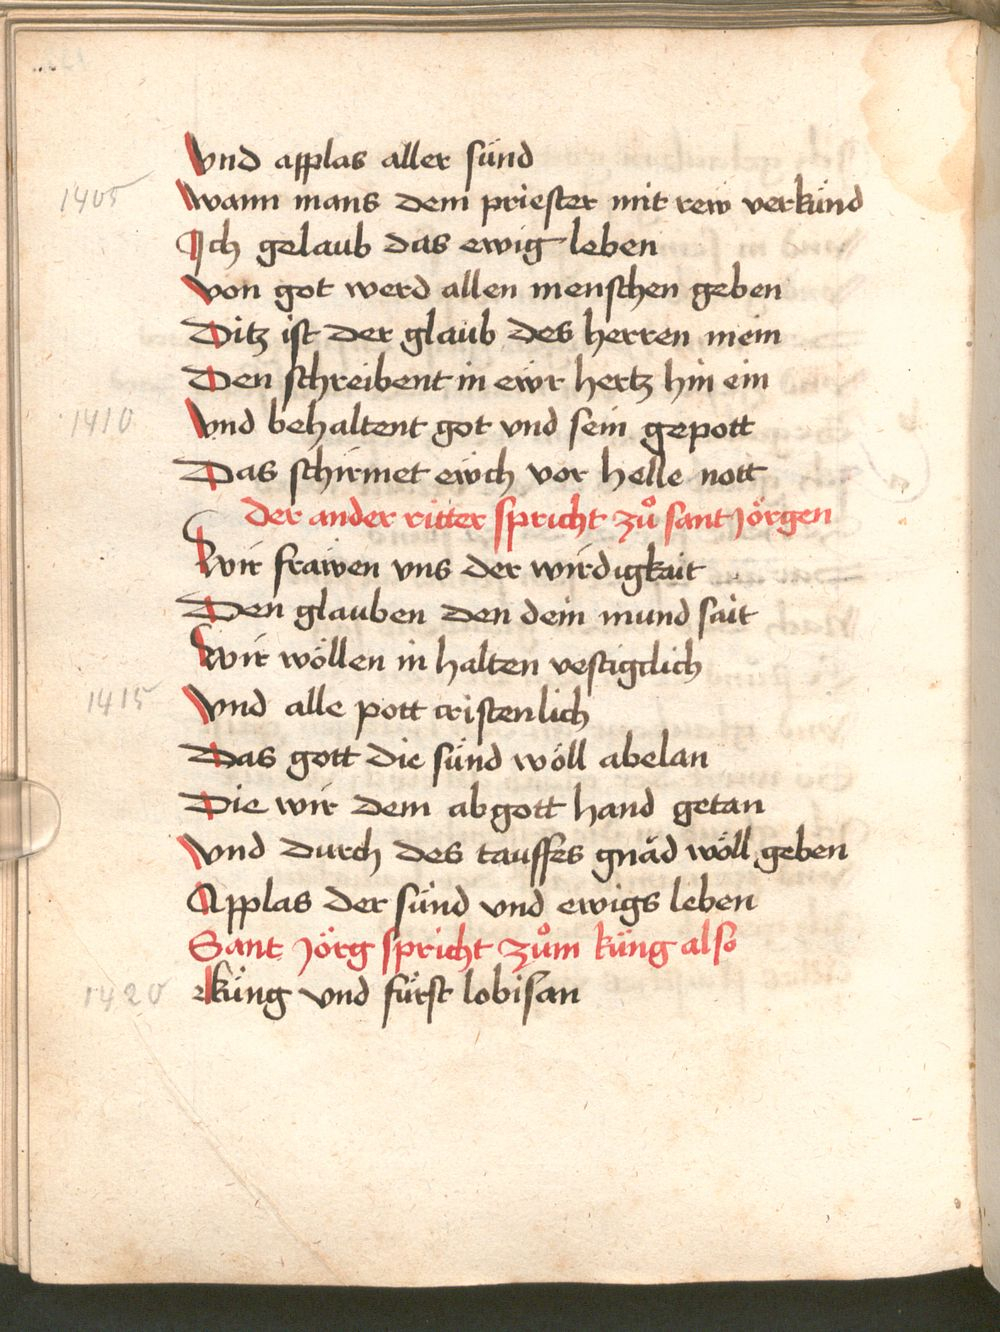 Vnd applas aller sünd
1405 wann mans dem priester mit rew verkünd
Ich gelaub das ewig leben
von got werd allen menschen geben
Ditz ist der glaub des herren mein
Den schreibent in ewr hertz hin ein
1410 Vnd behaltent got vnd sein gepott
Das schirmet ewch vor helle nott
der ander ritter spricht zů sant Jörgen
Wir frawen vns der wirdigkait
Den glauben den dein mund sait
Wir wöllen in halten vestigclich
1415 Vnd alle pott cristenlich
Das gott die sünd wöll abelan
Die wir dem abgott hand getan
Vnd durch des tauffes gnäd wöll geben
Applas der sünd vnd ewigs leben
Sant Jörg spricht zům küng also
1420 küng vnd fürst lobisan